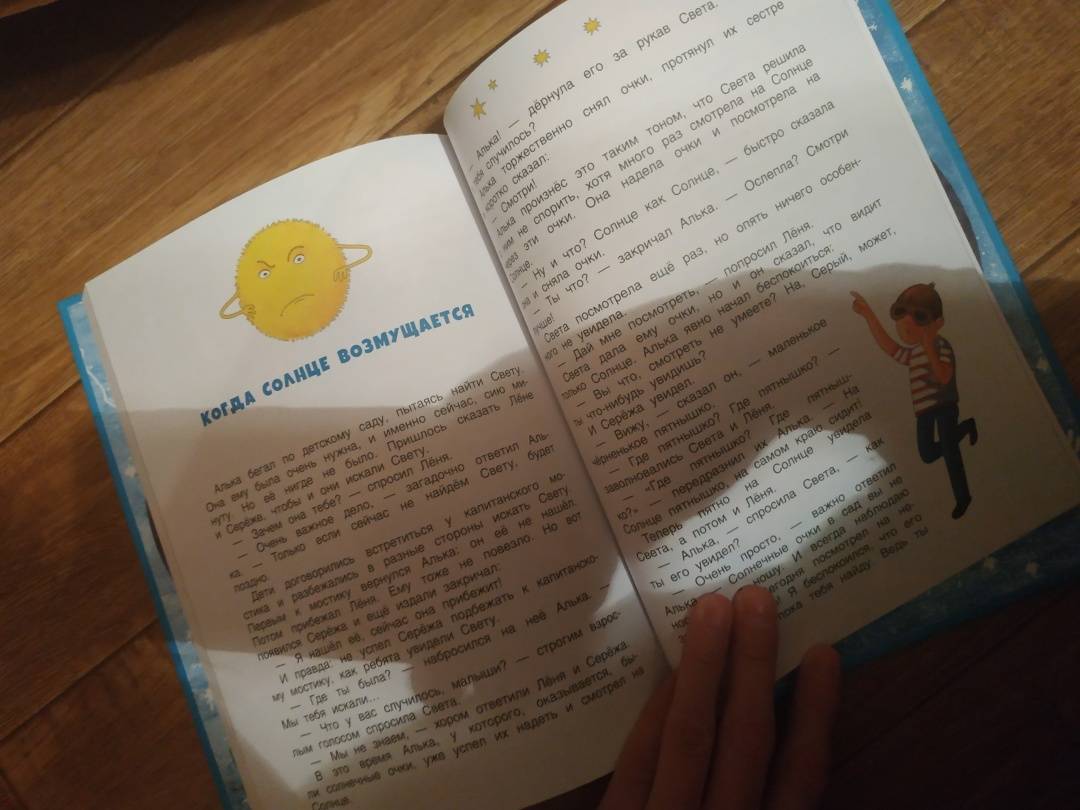 КОГДА СОЛНЦЕ ВОЗМУЩАЕТСЯ
Алька бегал по детскому саду, пытаясь найти Свету.
Она ему была очень нужна, и именно сейчас, сию ми-
нуту. Но её нигде не было. Пришлось сказать Лёне
и Серёже, чтобы и они искали Свету.
– Зачем она тебе? – спросил Лёня.
– Очень важное дело, – загадочно ответил Аль-
ка. – Только если сейчас не найдём Свету, будет
поздно.
Дети договорились встретиться у капитанского мо-
стика и разбежались в разные стороны искать Свету.
Первым к мостику вернулся Алька: он её не нашёл.
Потом прибежал Лёня. Ему тоже не повезло. Но вот
появился Серёжа и ещё издали закричал:
– Я нашёл её, сейчас она прибежит!
И правда: не успел Серёжа подбежать к капитанско-
му мостику, как ребята увидели Свету.
– Где ты была? – набросился на неё Алька. –
Мы тебя искали...
– Что у вас случилось, малыши? – строгим взрос-
лым голосом спросила Света.
– Мы не знаем, – хором ответили Лёня и Серёжа.
В это время Алька, у которого, оказывается, бы-
ли солнечные очки, уже успел их надеть и смотрел на
Солнце.
– Алька! – дёрнула его за рукав Света.
тебя случилось?
Алька торжественно снял очки, протянул их сестре
коротко сказал:
– Смотри!
Алька произнёс это таким тоном, что Света решила
ним не спорить, хотя много раз смотрела на Солнце
через эти очки. Она надела очки и посмотрела на
Солнце.
– Ну и что? Солнце как Солнце, – быстро сказала
она и сняла очки.
– Ты что? – закричал Алька. – Ослепла? Смотри
лучше!
Света посмотрела ещё раз, но опять ничего особен-
ного не увидела.
– Дай мне посмотреть, – попросил Лёня.
Света дала ему очки, но и он сказал, что видит
только Солнце. Алька явно начал беспокоиться:
– Вы что, смотреть не умеете? На, Серый, может,
ты что-нибудь увидишь?
И Серёжа увидел.
– Вижу, – сказал он, – маленькое
чёрненькое пятнышко.
– Где пятнышко? Где пятнышко? –
заволновались Света и Лёня.
– «Где пятнышко? Где пятныш-
ко?» – передразнил их Алька. – На
Солнце пятнышко, на самом краю сидит!
Теперь пятно на Солнце увидела
Света, а потом и Лёня.
– Алька, – спросила Света, – как
ты его увидел?
– Очень просто, – важно ответил
Алька. – Солнечные очки в сад вы не
ношу. И всегда наблюдаю
сегодня посмотрел на не-
Я беспокоился, что его
пока тебя найду. Ведь ты